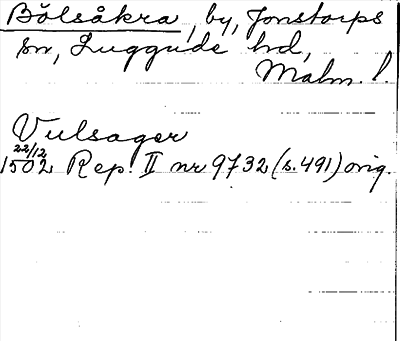 Bölsåkra, by, Jonstorps
sn, Luggude hd,
Malm. l.
Vulsager
22/12
1502 Rep. II nr 9732 (s. 491) orig.